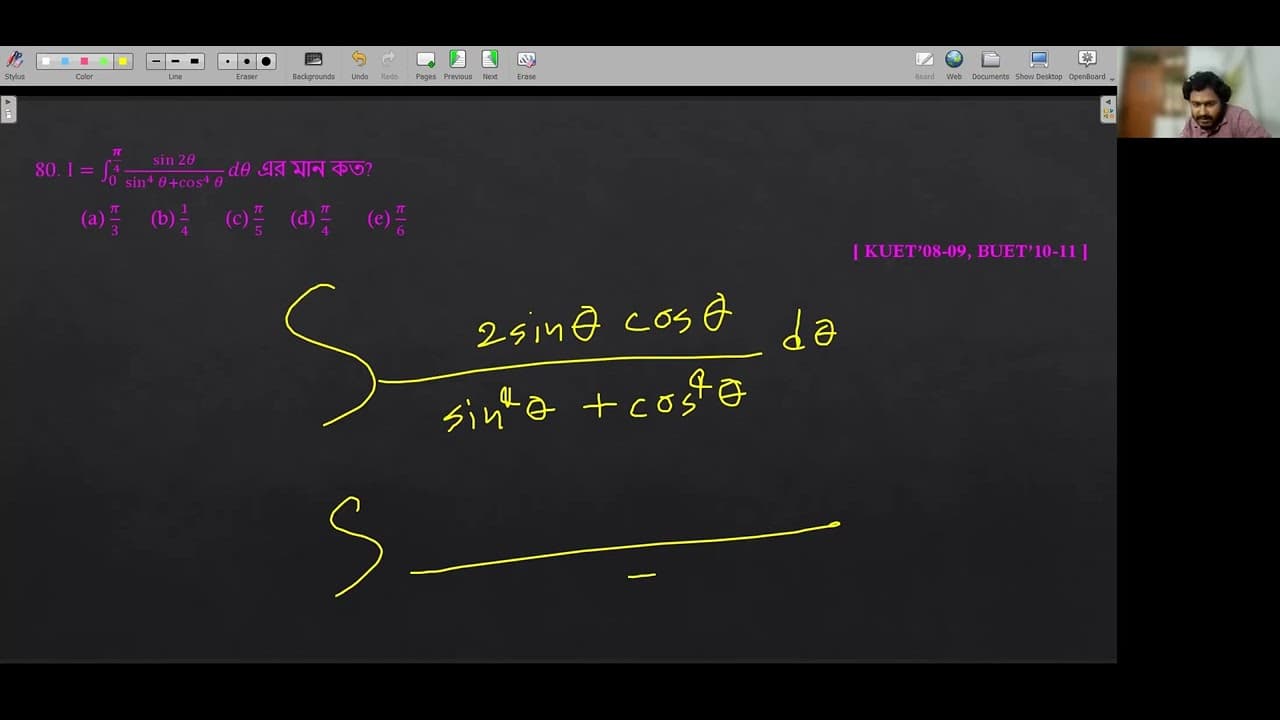 Stylus Color Line Eraser Backgrounds Undo Redo Pages Previous Next Erase Board Web Documents Show Desktop OpenBoard
80. I = ∫₀^(π/4) sin 2θ / (sin⁴ θ+cos⁴ θ) dθ এর মান কত?
(a) π/3 (b) 1/4 (c) π/5 (d) π/4 (e) π/6
[ KUET’08-09, BUET’10-11 ]
∫ 2sinθ cosθ / (sin⁴θ + cos⁴θ) dθ
∫